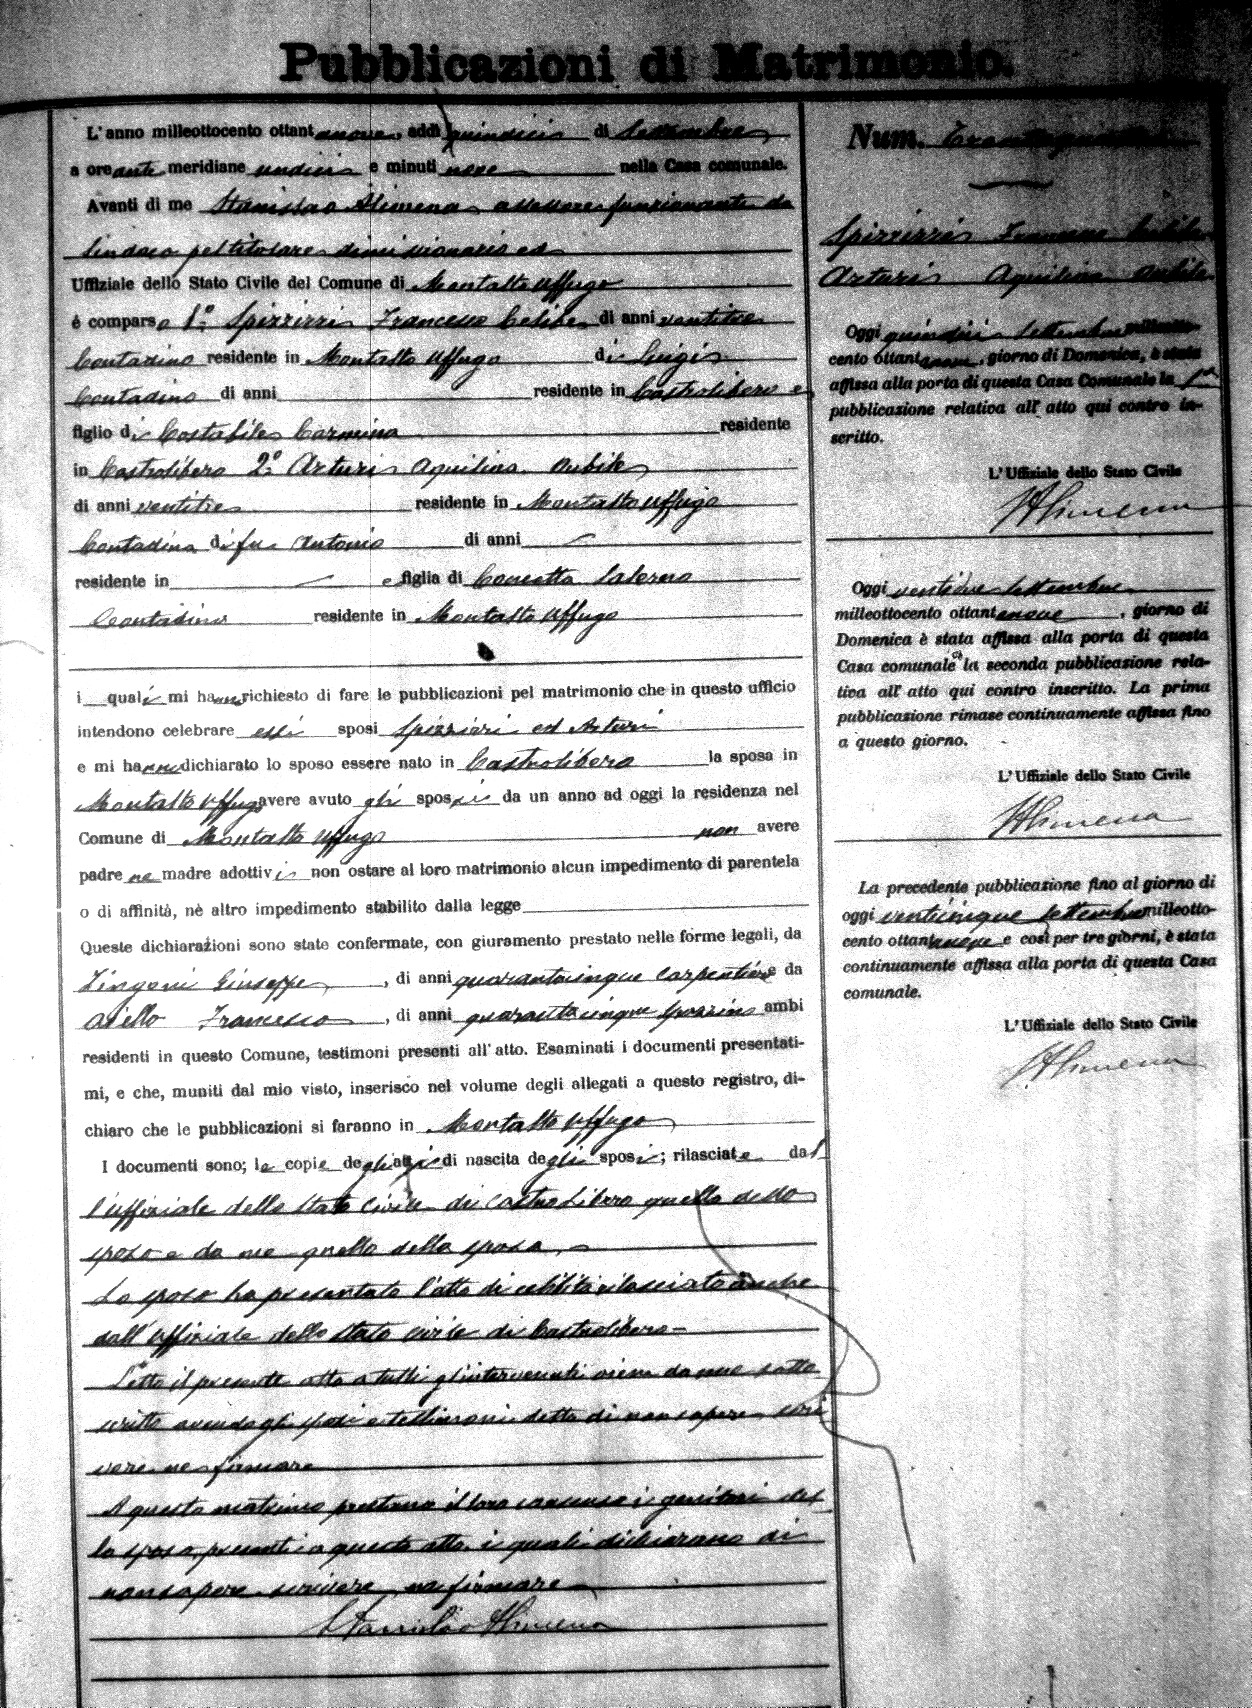 Pubblicazioni di Matrimonio.
L'anno milleottocento ottantanove, addì quindici di Settembre
a ore ante meridiane undici e minuti nove nella Casa comunale.
Avanti di me Stanislao Alimena assessore funzionante da
Sindaco pel titolare dimissionario ed
Uffiziale dello Stato Civile del Comune di Montalto Uffugo
é comparso 1º Spizzirri Francesco Celibe di anni ventitre
Contadino residente in Montalto Uffugo di Luigi
Contadino di anni residente in Castrolibero e
figlio di Costabile Carmina residente
in Castrolibero 2º Arturi Aquilina nubile
di anni ventitre residente in Montalto Uffugo
Contadina di fu Antonio di anni
residente in e figlia di Concetta Salerno
Contadina residente in Montalto Uffugo
i quali mi hanno richiesto di fare le pubblicazioni pel matrimonio che in questo ufficio
intendono celebrare essi sposi Spizzirri ed Arturi
e mi hanno dichiarato lo sposo essere nato in Castrolibero la sposa in
Montalto Uffugo avere avuto gli sposi da un anno ad oggi la residenza nel
Comune di Montalto Uffugo non avere
padre ne madre adottivi non ostare al loro matrimonio alcun impedimento di parentela
o di affinità, nè altro impedimento stabilito dalla legge
Queste dichiarazioni sono state confermate, con giuramento prestato nelle forme legali, da
Zingoni Giuseppe, di anni quarantacinque carpentiere e da
Aiello Francesco, di anni quarantacinque spazzino ambi
residenti in questo Comune, testimoni presenti all'atto. Esaminati i documenti presentati-
mi, e che, muniti dal mio visto, inserisco nel volume degli allegati a questo registro, di-
chiaro che le pubblicazioni si faranno in Montalto Uffugo
I documenti sono; le copie degli atti di nascita degli sposi; rilasciate dal
l'uffiziale dello Stato Civile di Castrolibero quella dello
sposo e da me quella della sposa.
Lo sposo ha presentato l'atto di celibità rilasciato anche
dall'Uffiziale dello Stato civile di Castrolibero
Letto il presente atto a tutti gl'intervenuti viene da me sotto
scritto avendo gli sposi e testimoni detto di non sapere scri
vere ne firmare
A questo matrimo prestano il loro consenso i genitori del
lo sposo presenti a questo atto i quali dichiarano di
non sapere scrivere ne firmare
Stanislao Alimena
Num. Trentaquattro
Spizzirri Francesco celibe
Arturi Aquilina nubile
Oggi quindici Settembre milleotto-
cento ottantanove, giorno di Domenica, è stata
affissa alla porta di questa Casa Comunale la 1ª
pubblicazione relativa all'atto qui contro in-
scritto.
L'Uffiziale dello Stato Civile
SAlimena
Oggi ventidue Settembre
milleottocento ottantanove, giorno di
Domenica è stata affissa alla porta di questa
Casa comunale la seconda pubblicazione rela-
tiva all'atto qui contro inscritto. La prima
pubblicazione rimase continuamente affissa fino
a questo giorno.
L'Uffiziale dello Stato Civile
SAlimena
La precedente pubblicazione fino al giorno di
oggi venticinque Settembre milleotto-
cento ottantanove e così per tre giorni, è stata
continuamente affissa alla porta di questa Casa
comunale.
L'Uffiziale dello Stato Civile
SAlimena